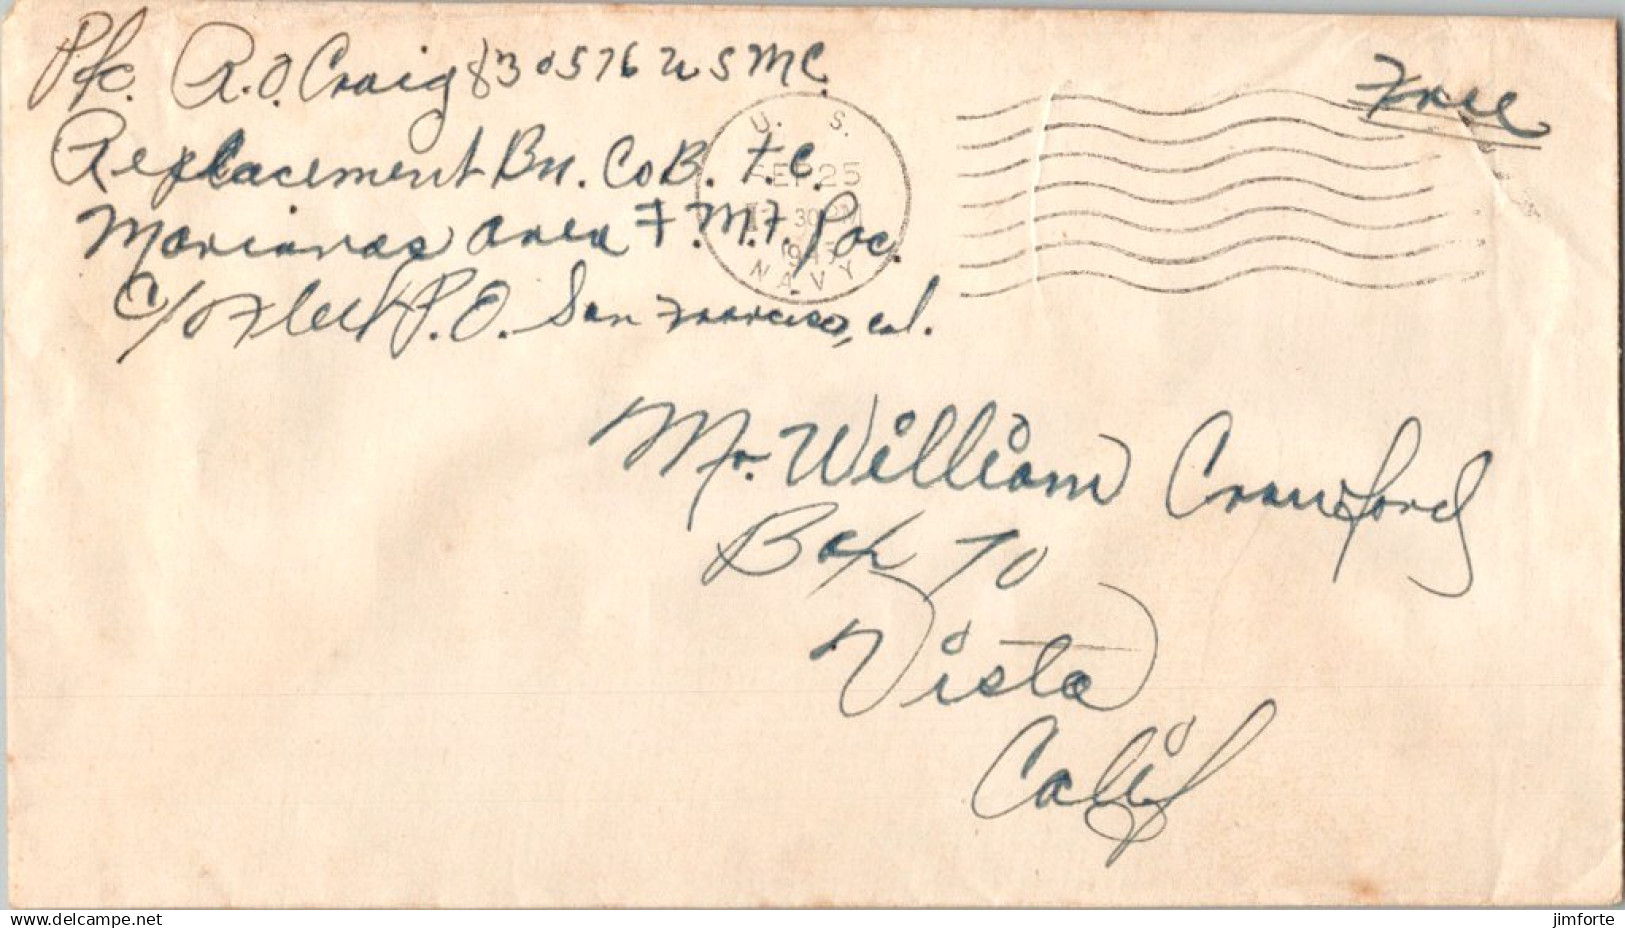 Pfc. R.O. Craig 830576 USMC.
Free
Replacement Bn. Co B. F.C.
Marianas Area F.M.F. Pac.
C/O Fleet P.O. San Francisco, Cal.
U. S.
SEP 25
30 PM
1945
NAVY
Mr. William Crawford
Box 70
Vista
Calif
www.delcampe.net
jimforte